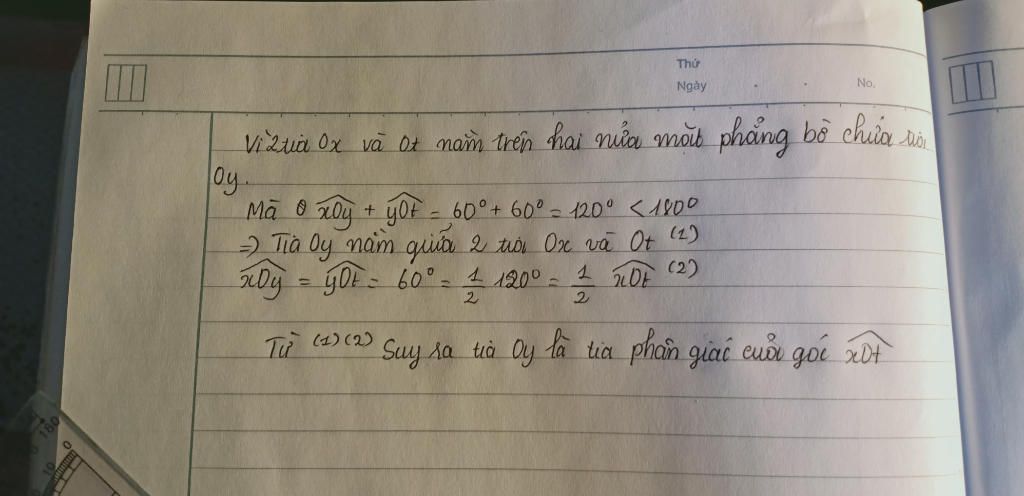 Thứ
Ngày . . No.
Vì 2 tia Ox và Ot nằm trên hai nửa mặt phẳng bờ chứa tia
Oy.
Mà xOy + yOt = 60° + 60° = 120° < 180°
=> Tia Oy nằm giữa 2 tia Ox và Ot (1)
xOy = yOt = 60° = 1/2 120° = 1/2 xOt (2)
Từ (1) (2) Suy ra tia Oy là tia phân giác của góc xOt
180
10
0